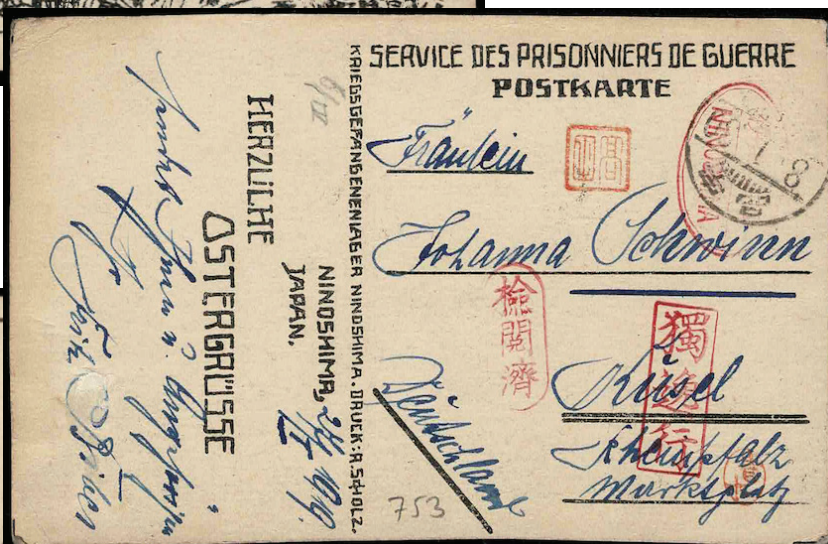 SERVICE DES PRISONNIERS DE GUERRE
POSTKARTE
Fräulein
Johanna Schwinn
Kusel
Rheinpfalz
Marktplatz
Deutschland
檢閲濟
獨逸行
753
KRIEGSGEFANGENENLAGER NINOSHIMA. DRUCK: A. SCHOLZ.
NINOSHIMA, 24/I 1919.
JAPAN.
HERZLICHE
OSTERGRÜSSE
sendet Ihnen u. Angehörigen
Ihr
Fritz